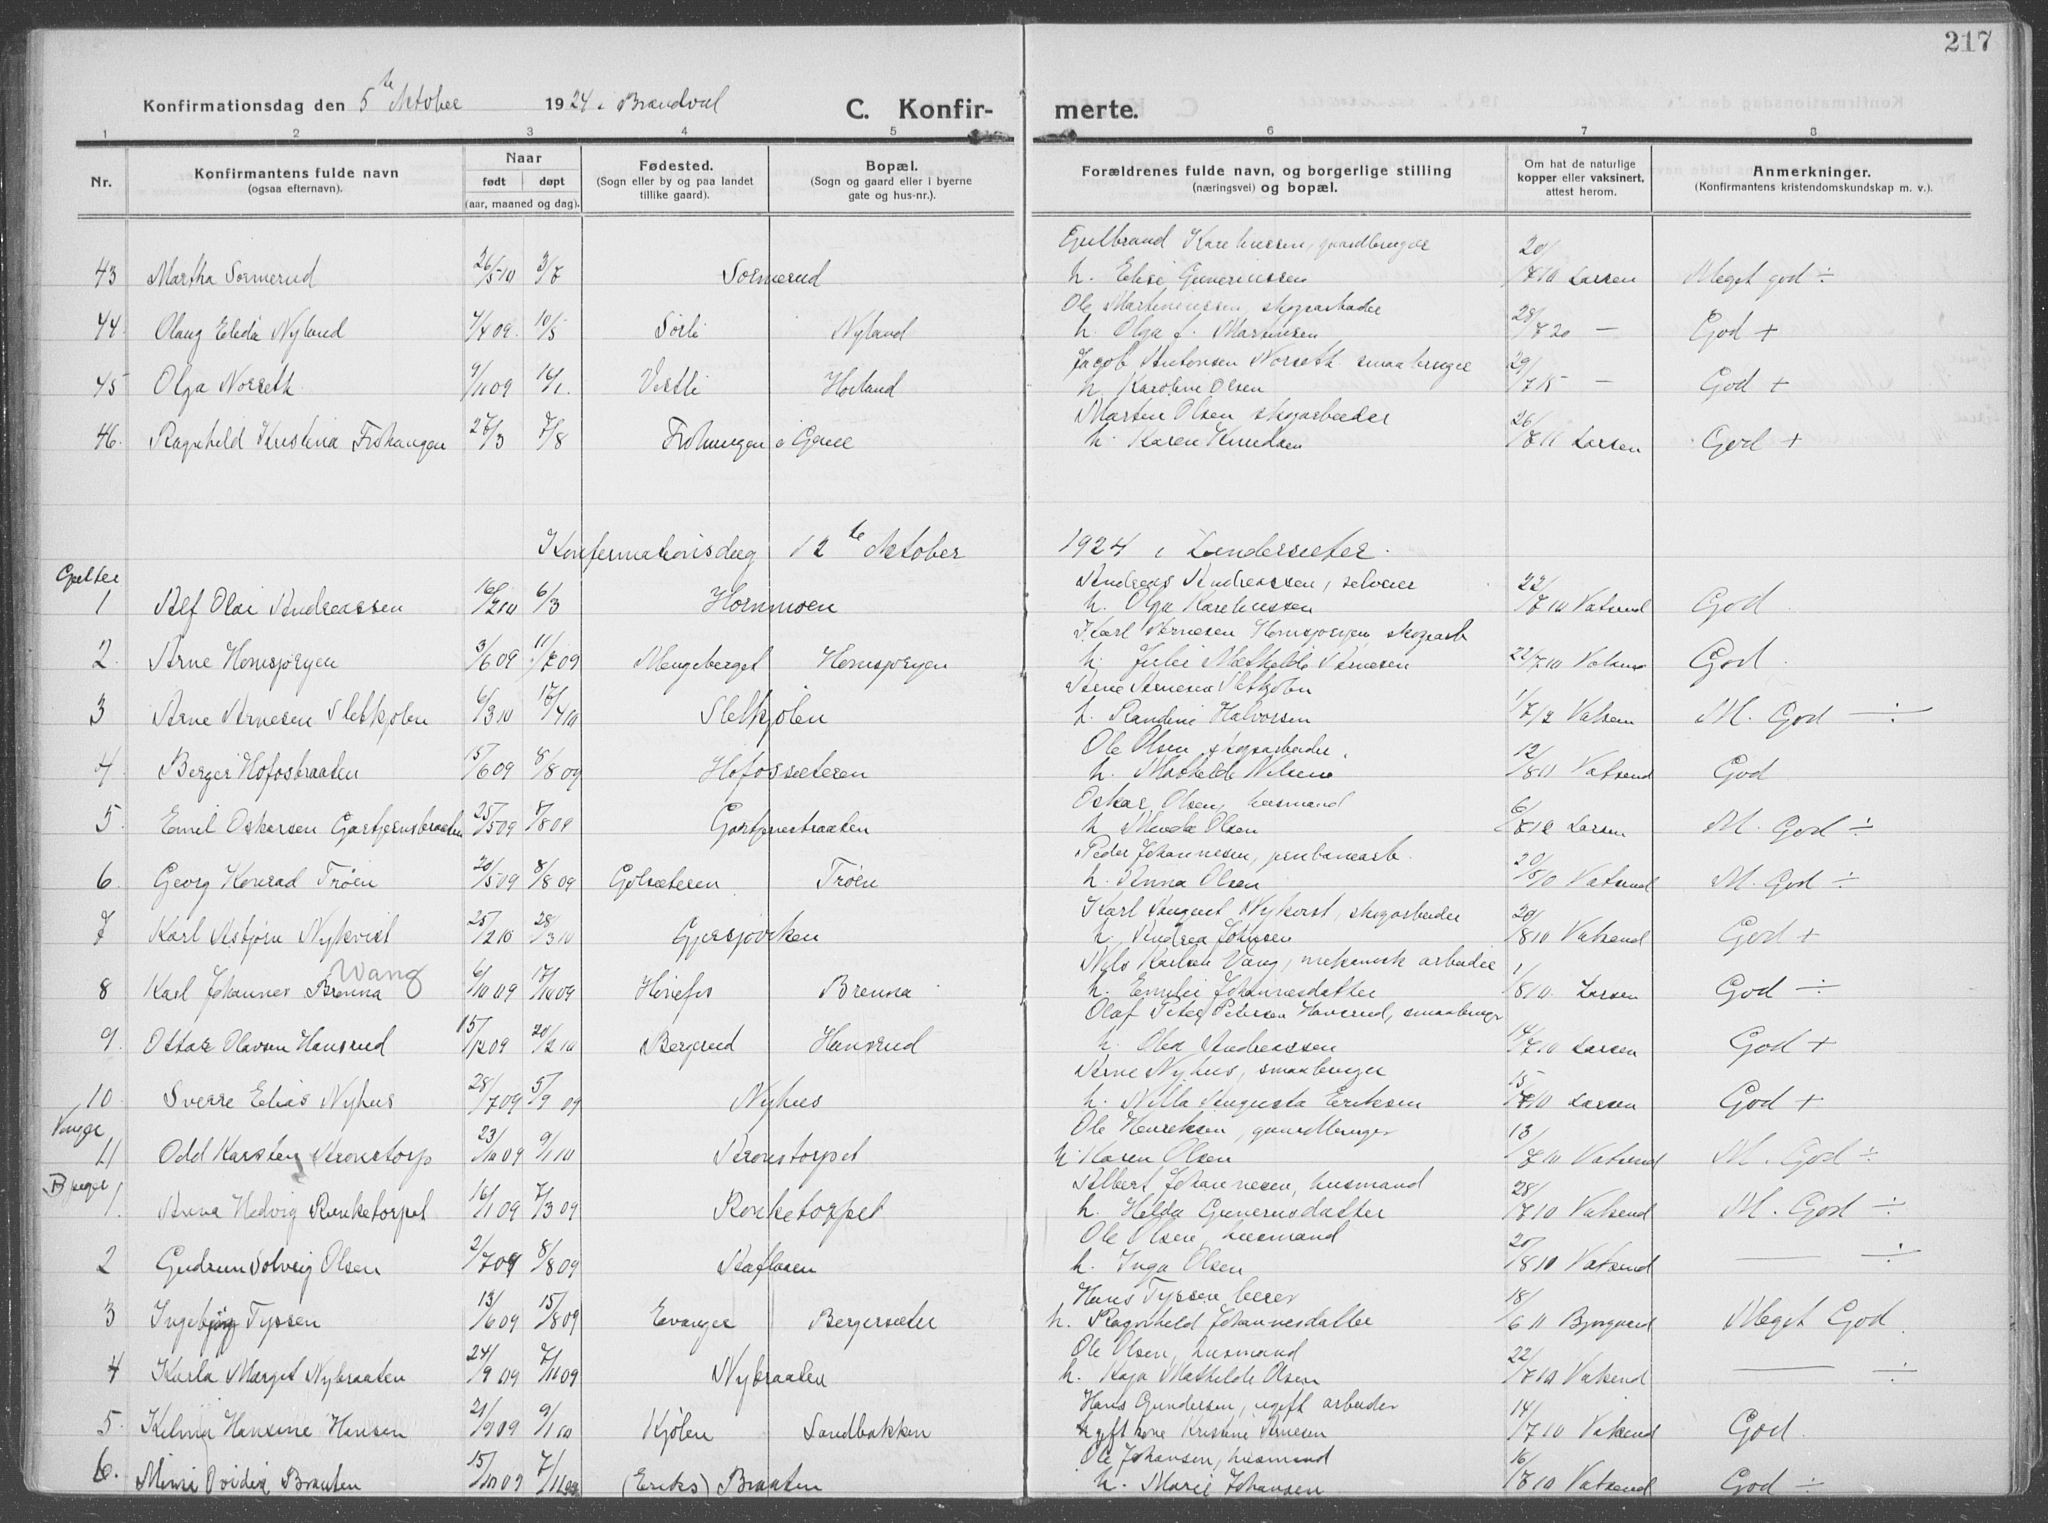 217
Konfirmationsdag den 5te Oktober 1924 i Brandval
C. Konfirmerte.
1 2 3 4 5 6 7 8
Nr.
Konfirmantens fulde navn
(ogsaa efternavn).
Naar
født døpt
(aar, maaned og dag).
Fødested.
(Sogn eller by og paa landet
tillike gaard).
Bopæl.
(Sogn og gaard eller i byerne
gate og hus-nr.).
Forældrenes fulde navn, og borgerlige stilling
(næringsvei) og bopæl.
Om hat de naturlige
kopper eller vaksinert,
attest herom.
Anmerkninger.
(Konfirmantens kristendomskundskap m. v.).
Gulbrand Karelinssen, gaardbruger
43 Martha Sormerud 26/5 10 3/7 Sormerud h. Elise Gunerinssen 20/7 10 Larsen Meget god ÷
Ole Martinussen, skogarbader
44. Olaug Nyland 7/4 09. 10/5 Sørli Nyland h. Olga Martinsen 28/7 20 — God +
Jacob Antonsen Norseth smaabruger
45 Olga Norseth 9/11 09 14/1. Vestli Hovland h. Karoline Olsen 29/7 15 — God +
Martin Olsen skogarbeider
46. Ragnhild Kristina Fiskaugen 27/3 7/8 h. Karen Knudsen 26/7 11 Larsen God +
Konfirmationsdag 12te Oktober 1924 i Lundersæter.
Gutter
Andreas Andreassen, selveier
1 Alf Olai Andreassen 16/2 10 6/3 Hornmoen h. Olga Karelinssen 22/7 10 Vatsend God
Karl Arnesen Homsjøryen skogsarb
2. Arne Homsjøryen 3/6 09 11/7 09 Mengeberget Homsjøryen h. Julie Mathilde Arnesen 22/7 10 God
Arne Arnesen Sletkjølen
3 Arne Arnesen Sletkjølen 6/3 10 17/4 10 Sletkjølen h. Randine Halvorsen 1/7 12 Vatsen M. God ÷
Ole Olsen skogsarbeider
4 Berger Hofosbraaten 15/6 09 8/8 09 Hofossæteren h. Mathilde 12/8 11 Vatsend God
Oskar Olsen, husmand
5. Emil Oskarsen Gartjernsbraaten 25/5 09 8/8 09 Gartjernsbraaten h Olsen 6/8 12 Larsen M. God ÷
Peder Johannesen, jernbanearb.
6. Georg Konrad Trøen 20/5 09 8/8 09 Gølsæteren Trøen h. Anna Olsen 20/8 10 Vatsend M. God ÷
Karl August Nykvist, skogarbeider
7 Karl Asbjørn Nykvist 25/2 10 28/3 10 Gjersjøviken h. Andrea Johnsen 20/8 10 Vatsend God +
Nils Karlsen Vang, mekanisk arbeider
Wang
8 Karl Johannes Brenna 6/10 09 17/10 09 Hønefos Brenna h. Emilie Johannesdatter 1/8 10. Larsen God ÷
Olaf Peter Petersen Hansrud, smaabruger
9. Ottar Olavsen Hansrud 15/12 09 20/2 10 Bergerud Hansrud h. Olea Andreassen 14/7 10 Larsen God +
Arne Nyhus, smaabruger
10. Sverre Elias Nyhus 28/7 09 5/9 09 Nyhus h. Nilla Augusta Eriksen 15/7 10 Larsen God +
Ole Henriksen, gaardbruger
11 Odd Karsten Aronstorp 23/10 09 9/1 10 Aronstorpet h. Karen Olsen 13/7 10 Vatsend M. God ÷
Piger
Albert Johannesen, husmand
1. Anna Hedvig Runketorpet 16/1 09 7/3 09 Ronketorpet h. Helda Gunerusdatter 28/7 10 Vatsend M. God ÷
Ole Olsen, husmand
2 Gudrun Solveig Olsen 2/7 09 8/8 09 h. Inga Olsen 20/8 10 Vatsend — ÷
Hans Tyssen lærer
3 Ingebjørg Tyssen 13/6 09 15/8 09 Evanger Bergersæter h. Ragnhild Johannesdatter 18/6 11 Bjorgaard Meget God
Ole Olsen, husmand
4 Karla Marget Nybraaten 24/9 09 7/11 09 Nybraaten h. Kaja Mathilde Olsen 22/7 10 Vatsend — ÷
Hans Gundersen, ugift arbeider
5. Hansine Hansen 21/9 09 9/1 10 Kjølen Sandbakken ugift kone Kristine Arnesen 14/7 10 Vatsend God.
Ole Johansen, husmand
6. Mimi Ovidia Braaten 15/10 09 7/11 09 (Eriks) Braaten h. Marie Johansen 16/7 10 Vatsend God ÷